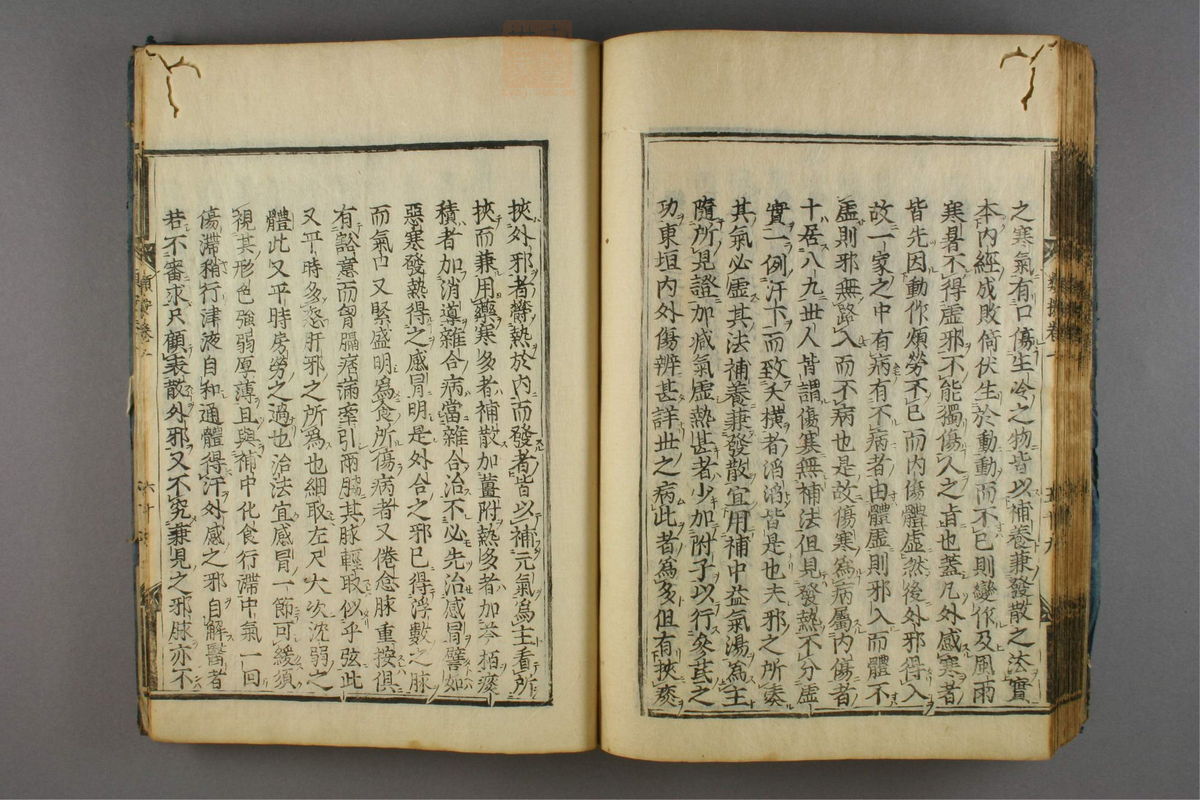 之寒氣有口傷生冷之物皆以補養兼發散之法實
本內經成敗倚伏生於動動而不已則變作及風雨
寒暑不得虛邪不能獨傷人之旨也蓋凡外感寒者
皆先因動作煩勞不已而內傷體虛然後外邪得入
故一家之中有病有不病者由體虛則邪入而體不
虛則邪無路入而不病也是故傷寒為病屬內傷者
十居八九世人皆謂傷寒無補法但見發熱不分虛
實一例汗下而致夭橫者滔滔皆是也夫邪之所湊
其氣必虛其法補養兼發散宜用補中益氣湯為主
隨所見證加減氣虛熱甚者少加附子以行參芪之
功東垣內外傷辨甚詳世之病此者為多但有挾痰
挾外邪者鬱熱於內而發者皆以補元氣為主看所
挾而兼用藥寒多者補散加薑附熱多者加芩栢痰
積者加消導雜合病當雜合治不必先治感冒譬如
惡寒發熱得之感冒明是外合之邪已得浮數之脉
而氣口又緊盛明為食所傷病者又倦怠脉重按俱
有澁意而胷膈痞滿牽引兩脇其脉輕取似乎弦此
又平時多怒肝邪之所為也細取左尺大次沈弱之
體此又平時房勞之過也治法宜感冒一節可緩須
視其形色強弱厚薄且與補中化食行滯中氣一回
傷滯稍行津液自和通體得汗外感之邪自解醫者
若不審求只顧表散外邪又不究兼見之邪脉亦不